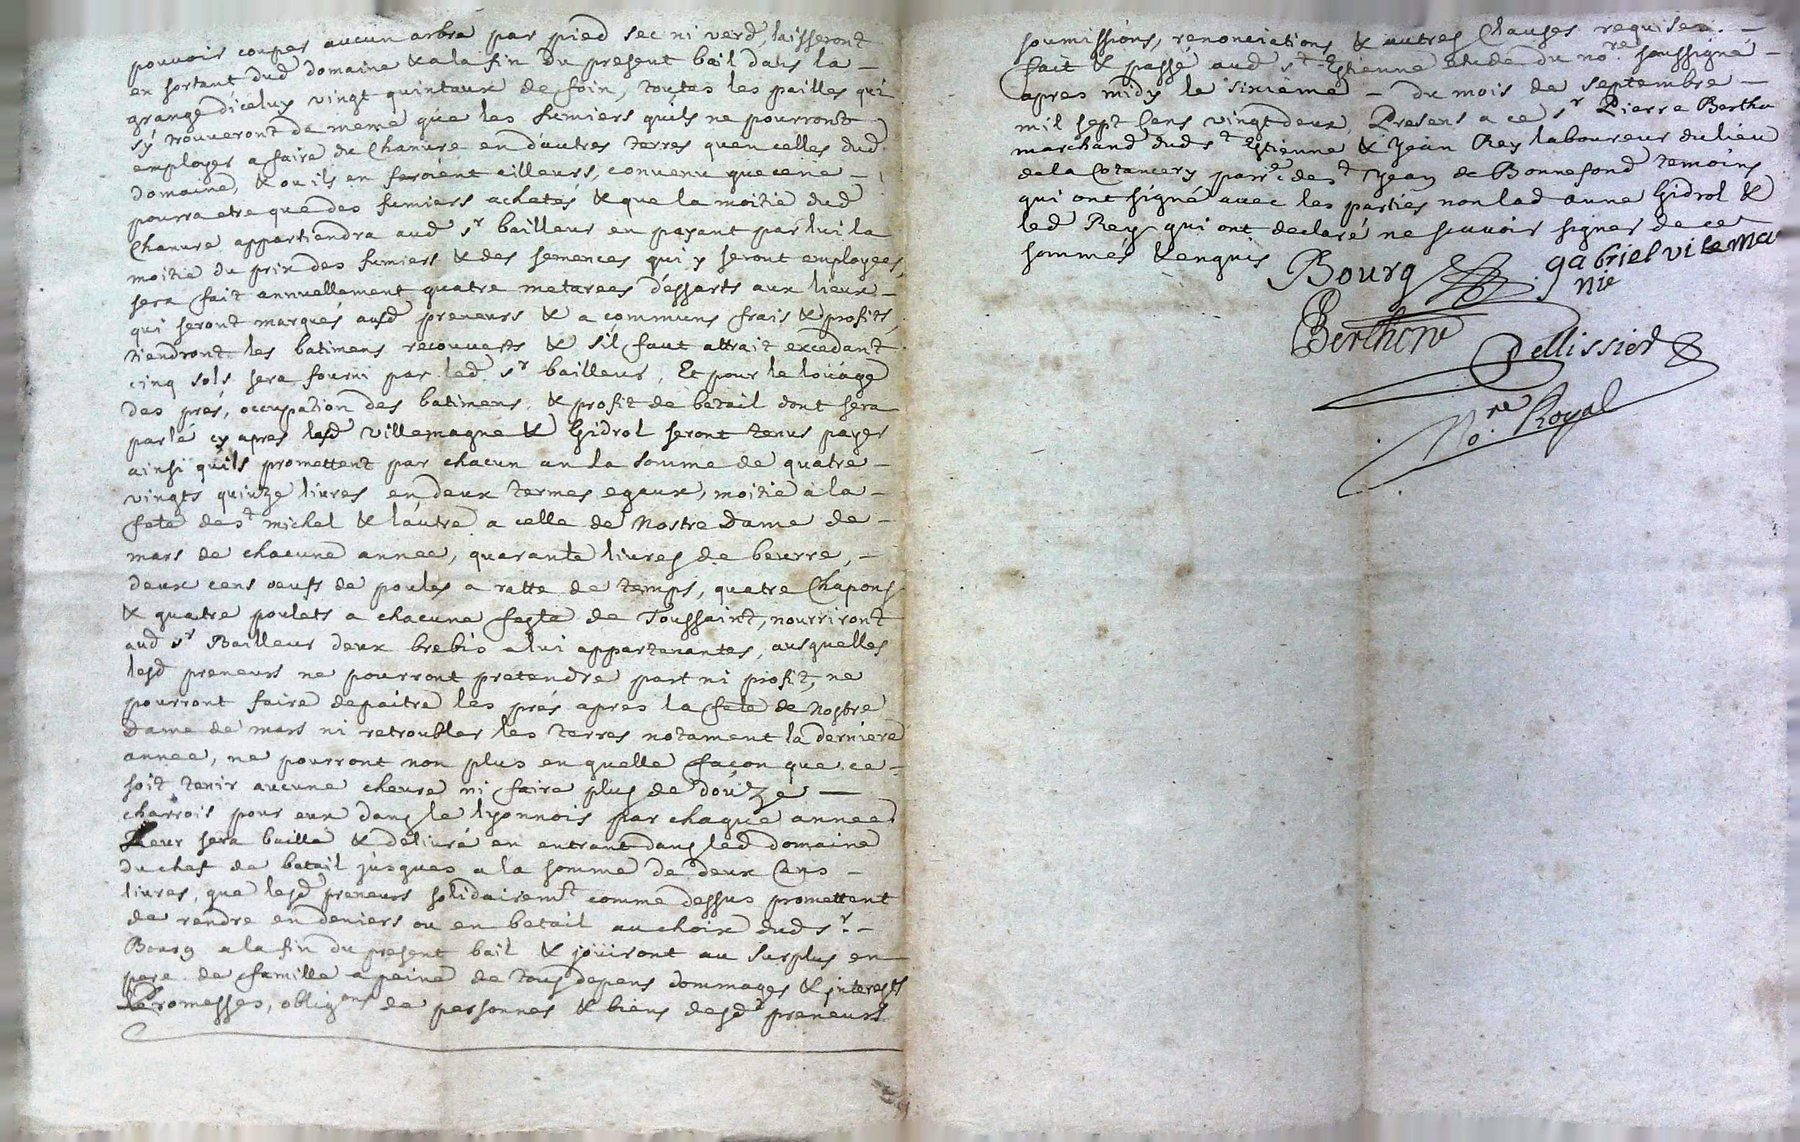 pouvoir couper aucun arbre par pied sec ni verd, laisseront
en sortant dud domaine & a la fin du present bail dans la
grange diceluy vingt quintaux de foin, toutes les pailles qui
s'y trouveront de meme que les fumiers quils ne pourront
employer a faire du Chanure en d'autres terres quen celles dud
domaine, & ou ils en feroient ailleurs, convenu que ce ne
pourra etre que des fumiers achetés & que la moitié dud
Chanure appartiendra aud Sr bailleur en payant par lui la
moitié du prix des fumiers & des semences qui y seront employees,
sera fait annuellement quatre meterees dessarts aux lieux
qui seront marqués ausd preneurs & a communs frais & profits,
tiendront les batimens recouverts & s'il faut attrait excedant
cinq sols sera fourni par led Sr bailleur, Et pour le loüage
des prés, occupation des batimens, & profit de betail dont sera
parlé cy apres lesd Villemagne & Gidrol seront tenus payer
ainsi qu'ils promettent par chacun an la somme de quatre
vingts quinze livres en deux termes egaux, moitié à la
fete de St michel & lautre a celle de Nostre Dame de
mars de chacune année, quarante livres de beurre,
deux cens oeufs de poules a ratte de temps, quatre Chapons
& quatre poulets a chacune feste de Toussaint, nourriront
aud Sr Bailleur deux brebis a lui appartenantes, ausquelles
lesd preneurs ne pourront pretendre part ni profit, ne
pourront faire depaitre les prés apres la fete de Nostre
Dame de mars ni retroubler les terres notament la derniere
année, ne pourront non plus en quelle façon que ce
soit, tenir aucune cheure ni faire plus de douze
charrois pour eux dans le lyonnois par chaque année
Leur sera baillé & delivré en entrant dans led domaine
du chef de betail jusques a la somme de deux Cens
livres, que lesd preneurs solidairemt comme dessus promettent
de rendre en deniers ou en betail au choix dud Sr
Bourg a la fin du present bail & joüiront au surplus en
pere de famille a peine de tous depens dommages & interests
Promesses, obligons de personnes & biens desd preneurs
soumissions, renonciations & autres Clauses requises
fait & passé aud St Estienne etude du nore soussigné
apres midy le sixième du mois de septembre
mil sept Cens vingt deux, Presens a ce Sr Pierre Bertho
marchand dud St Estienne & Jean Rey laboureur du lieu
de la Cotancery parre de St Jean de Bonnefond temoins
qui ont signé avec les parties non lad anne Gidrol &
led Rey qui ont declaré ne scavoir signer de ce
sommés & enquis
Bourg
gabriel vilema
nie
Bertholv
Pellissier
No.re Royal